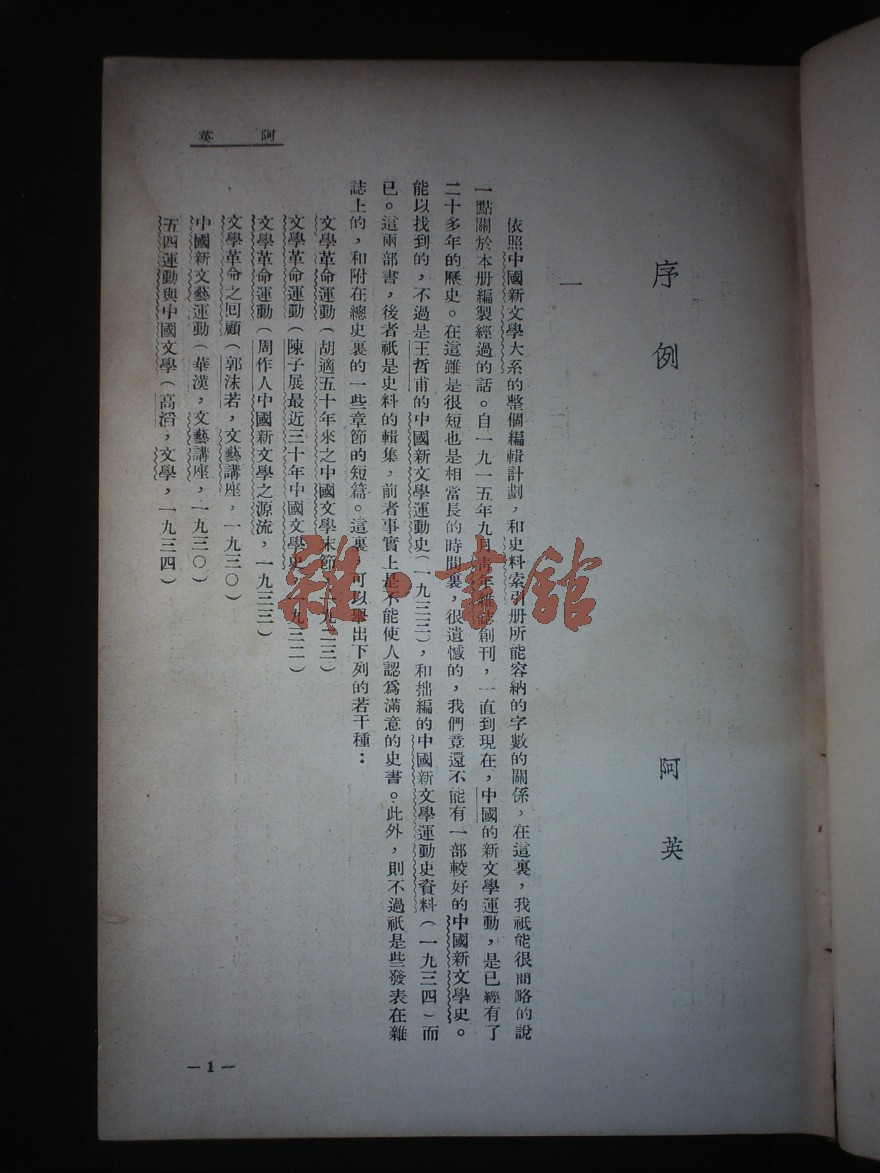 序例
阿英
一
依照中國新文學大系的整個編輯計劃，和史料索引册所能容納的字數的關係，在這裏，我祇能很間略的說
一點關於本册編製經過的話。自一九一五年九月靑年雜誌創刊，一直到現在，中國的新文學運動，是已經有了
二十多年的歷史。在這雖是很短也是相當長的時間裏，很遺憾的，我們竟還不能有一部較好的中國新文學史。
能以找到的，不過是王哲甫的中國新文學運動史（一九三三），和拙編的中國新文學運動史資料（一九三四）而
已。這兩部書，後者祇是史料的輯集，前者事實上是不能使人認爲滿意的史書。此外，則不過祇是些發表在雜
誌上的，和附在總史裏的一些章節的短篇。這裏，可以舉出下列的若干種：
文學革命運動（胡適五十年來之中國文學末節，一九二三）
文學革命運動（陳子展最近三十年中國文學史，一九三二）
文學革命運動（周作人中國新文學之源流，一九三三）
文學革命之回顧（郭沫若，文藝講座，一九三〇）
中國新文藝運動（華漢，文藝講座，一九三〇）
五四運動與中國文學（高滔，文學，一九三四）
阿英
—1—
雜·書館